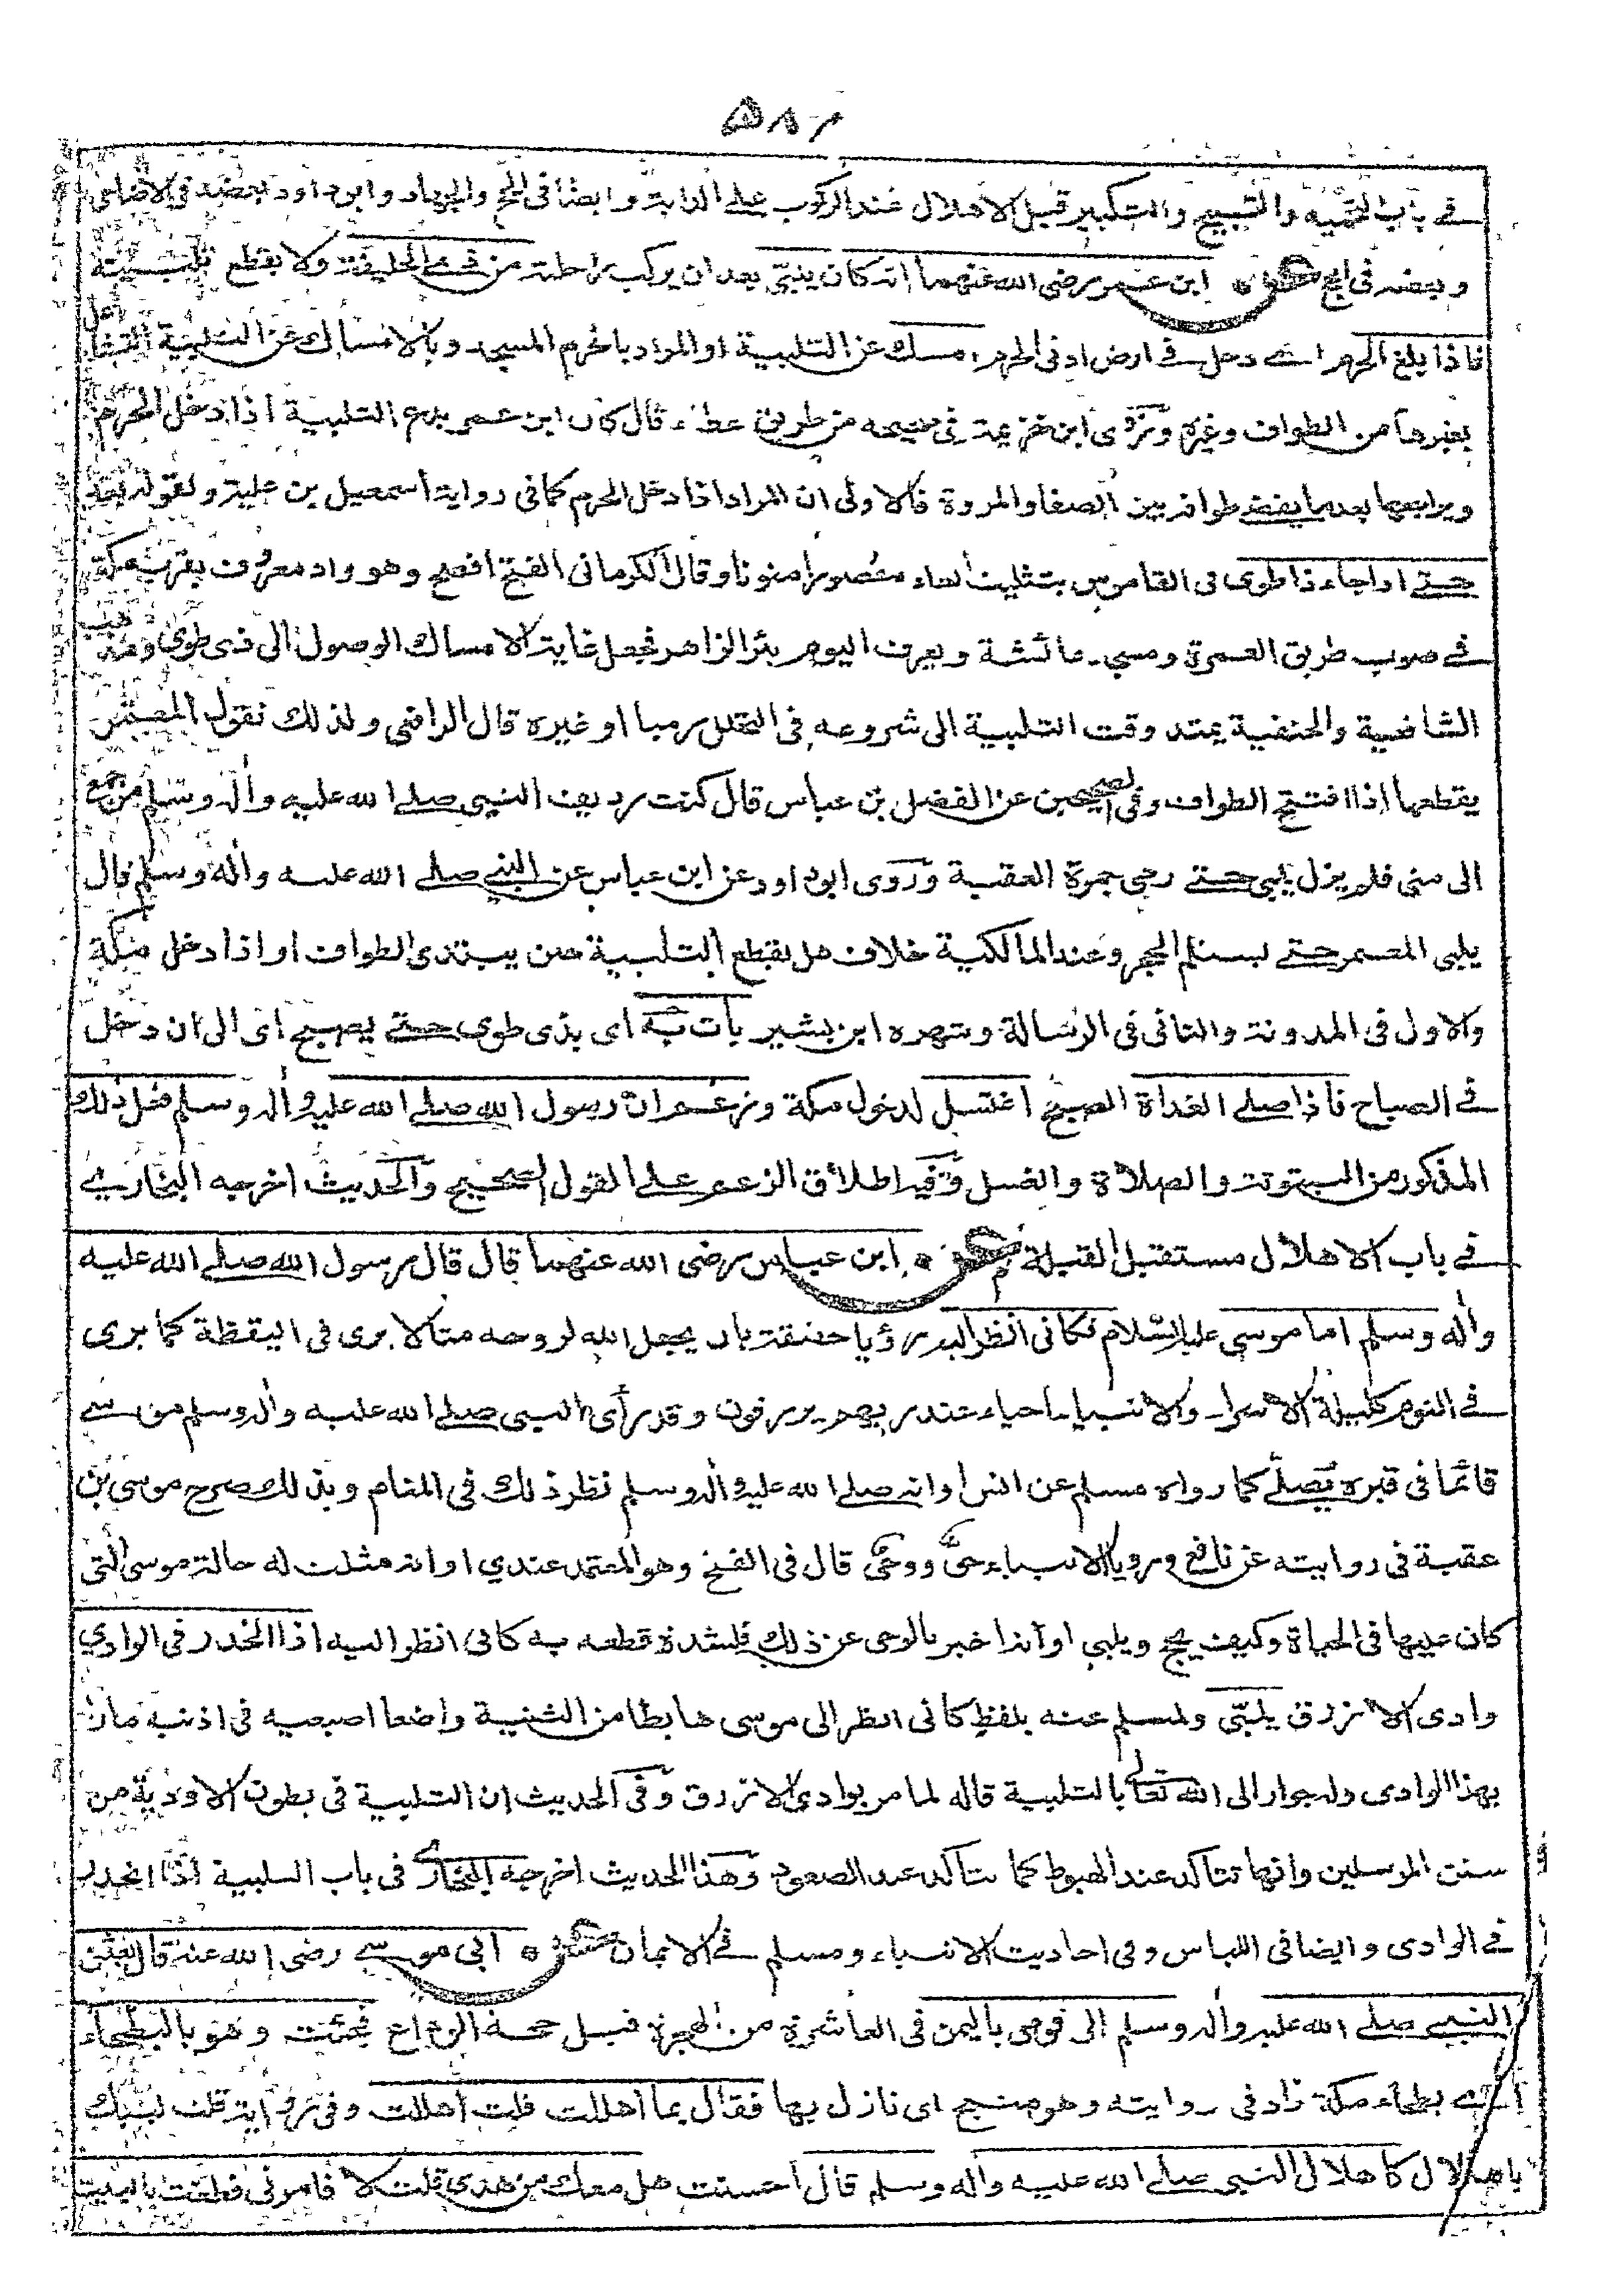 ٥٨٢
في باب التحميد والتسبيح والتكبير قبل الاهلال عند الركوب على الدابة وايضا فى الحج والجهاد وابوداود بعضه في الاضاحى
وبعضه فى الحج ابن عمر رضى الله عنهما انه كان يلبّى بعد ان يركب راحلته من ذى الحليفة ولا يقطع تلبيته
فاذا بلغ الحرم اى دخل في ارض ادنى الحرم امسك عن التلبية او المراد بالحرم المسجد وبالامساك عن التلبية التشاغل
بغيرها من الطواف وغيره وروى ابن خزيمة فى صحيحه من طريق عطاء قال كان ابن عمر يدع التلبية اذا دخل الحرم
ويراجعها بعد ما يقضى طوافه بين الصفا والمروة فالاولى ان المراد اذا دخل الحرم كما فى رواية اسمعيل بن علية ولقوله بعد
حتى اذا جاء ذا طوى فى القاموس بتثليث الطاء مقصورا منونا وقال الكرمانى الفتح افصح وهو واد معروف بقرب مكة
في صوب طريق العمرة ومسجد عائشة ويعرف اليوم ببئر الزاهر فجعل غاية الامساك الوصول الى ذى طوى ومذهب
الشافعية والحنفية يمتد وقت التلبية الى شروعه فى التحلل رميا او غيره قال الرافعى ولذلك نقول المعتمر
يقطعها اذا افتتح الطواف وفى الصحيحين عن الفضل بن عباس قال كنت رديف النبى صلى الله عليه وآله وسلم من جمع
الى منى فلم يزل يلبى حتى رمى جمرة العقبة وروى ابوداود عن ابن عباس عن النبي صلى الله عليه وآله وسلم قال
يلبى المعتمر حتى يستلم الحجر وعند المالكية خلاف هل يقطع التلبية حين يبتدى الطواف او اذا دخل مكة
والاول فى المدونة والثانى فى الرسالة وشهره ابن بشير بات به اى بذى طوى حتى يصبح اى الى ان دخل
في الصباح فاذا صلى الغداة الصبح اغتسل لدخول مكة وزعم ان رسول الله صلى الله عليه وآله وسلم فعل ذلك
المذكور من البيتوتة والصلاة والغسل وفيه اطلاق الزعم على القول الصحيح والحديث اخرجه البخاري
في باب الاهلال مستقبل القبلة ابن عباس رضى الله عنهما قال قال رسول الله صلى الله عليه
وآله وسلم اما موسى عليه السلام فكانى انظر اليه رؤيا حقيقة بان يجعل الله لروحه مثالا يرى فى اليقظة كما يرى
في النوم كليلة الاسراء والانبياء احياء عند ربهم يرزقون وقد رأى النبى صلى الله عليه وآله وسلم موسى
قائما فى قبره يصلى كما رواه مسلم عن انس او انه صلى الله عليه وآله وسلم نظر ذلك فى المنام وبذلك صرح موسى بن
عقبة فى روايته عن نافع ورؤيا الانبياء حق ووحى قال فى الفتح وهو المعتمد عندي او انه مثلت له حالة موسى التى
كان عليها فى الحياة وكيف يحج ويلبى او انه اخبر بالوحى عن ذلك فلشدة قطعه به كانى انظر اليه اذا انحدر فى الوادي
وادى الازرق يلبّى ولمسلم عنه بلفظ كانى انظر الى موسى هابطا من الثنية واضعا اصبعيه فى اذنيه مارّا
بهذا الوادى وله جوار الى الله تعالى بالتلبية قاله لما مر بوادى الازرق وفى الحديث ان التلبية فى بطون الاودية من
سنن المرسلين وانها تتاكد عند الهبوط كما تتاكد عند الصعود وهذا الحديث اخرجه البخارى فى باب التلبية اذا انحدر
في الوادى وايضا فى اللباس وفى احاديث الانبياء ومسلم في الايمان ابى موسى رضى الله عنه قال بعثنى
النبى صلى الله عليه وآله وسلم الى قومى باليمن فى العاشرة من الهجرة قبل حجة الوداع فجئت وهو بالبطحاء
اى بطحاء مكة زاد فى روايته وهو منيخ اى نازل بها فقال بما اهللت قلت اهللت وفى رواية قلت لبيك
باهلال كاهلال النبى صلى الله عليه وآله وسلم قال احسنت هل معك من هدى قلت لا فامرنى فطفت بالبيت